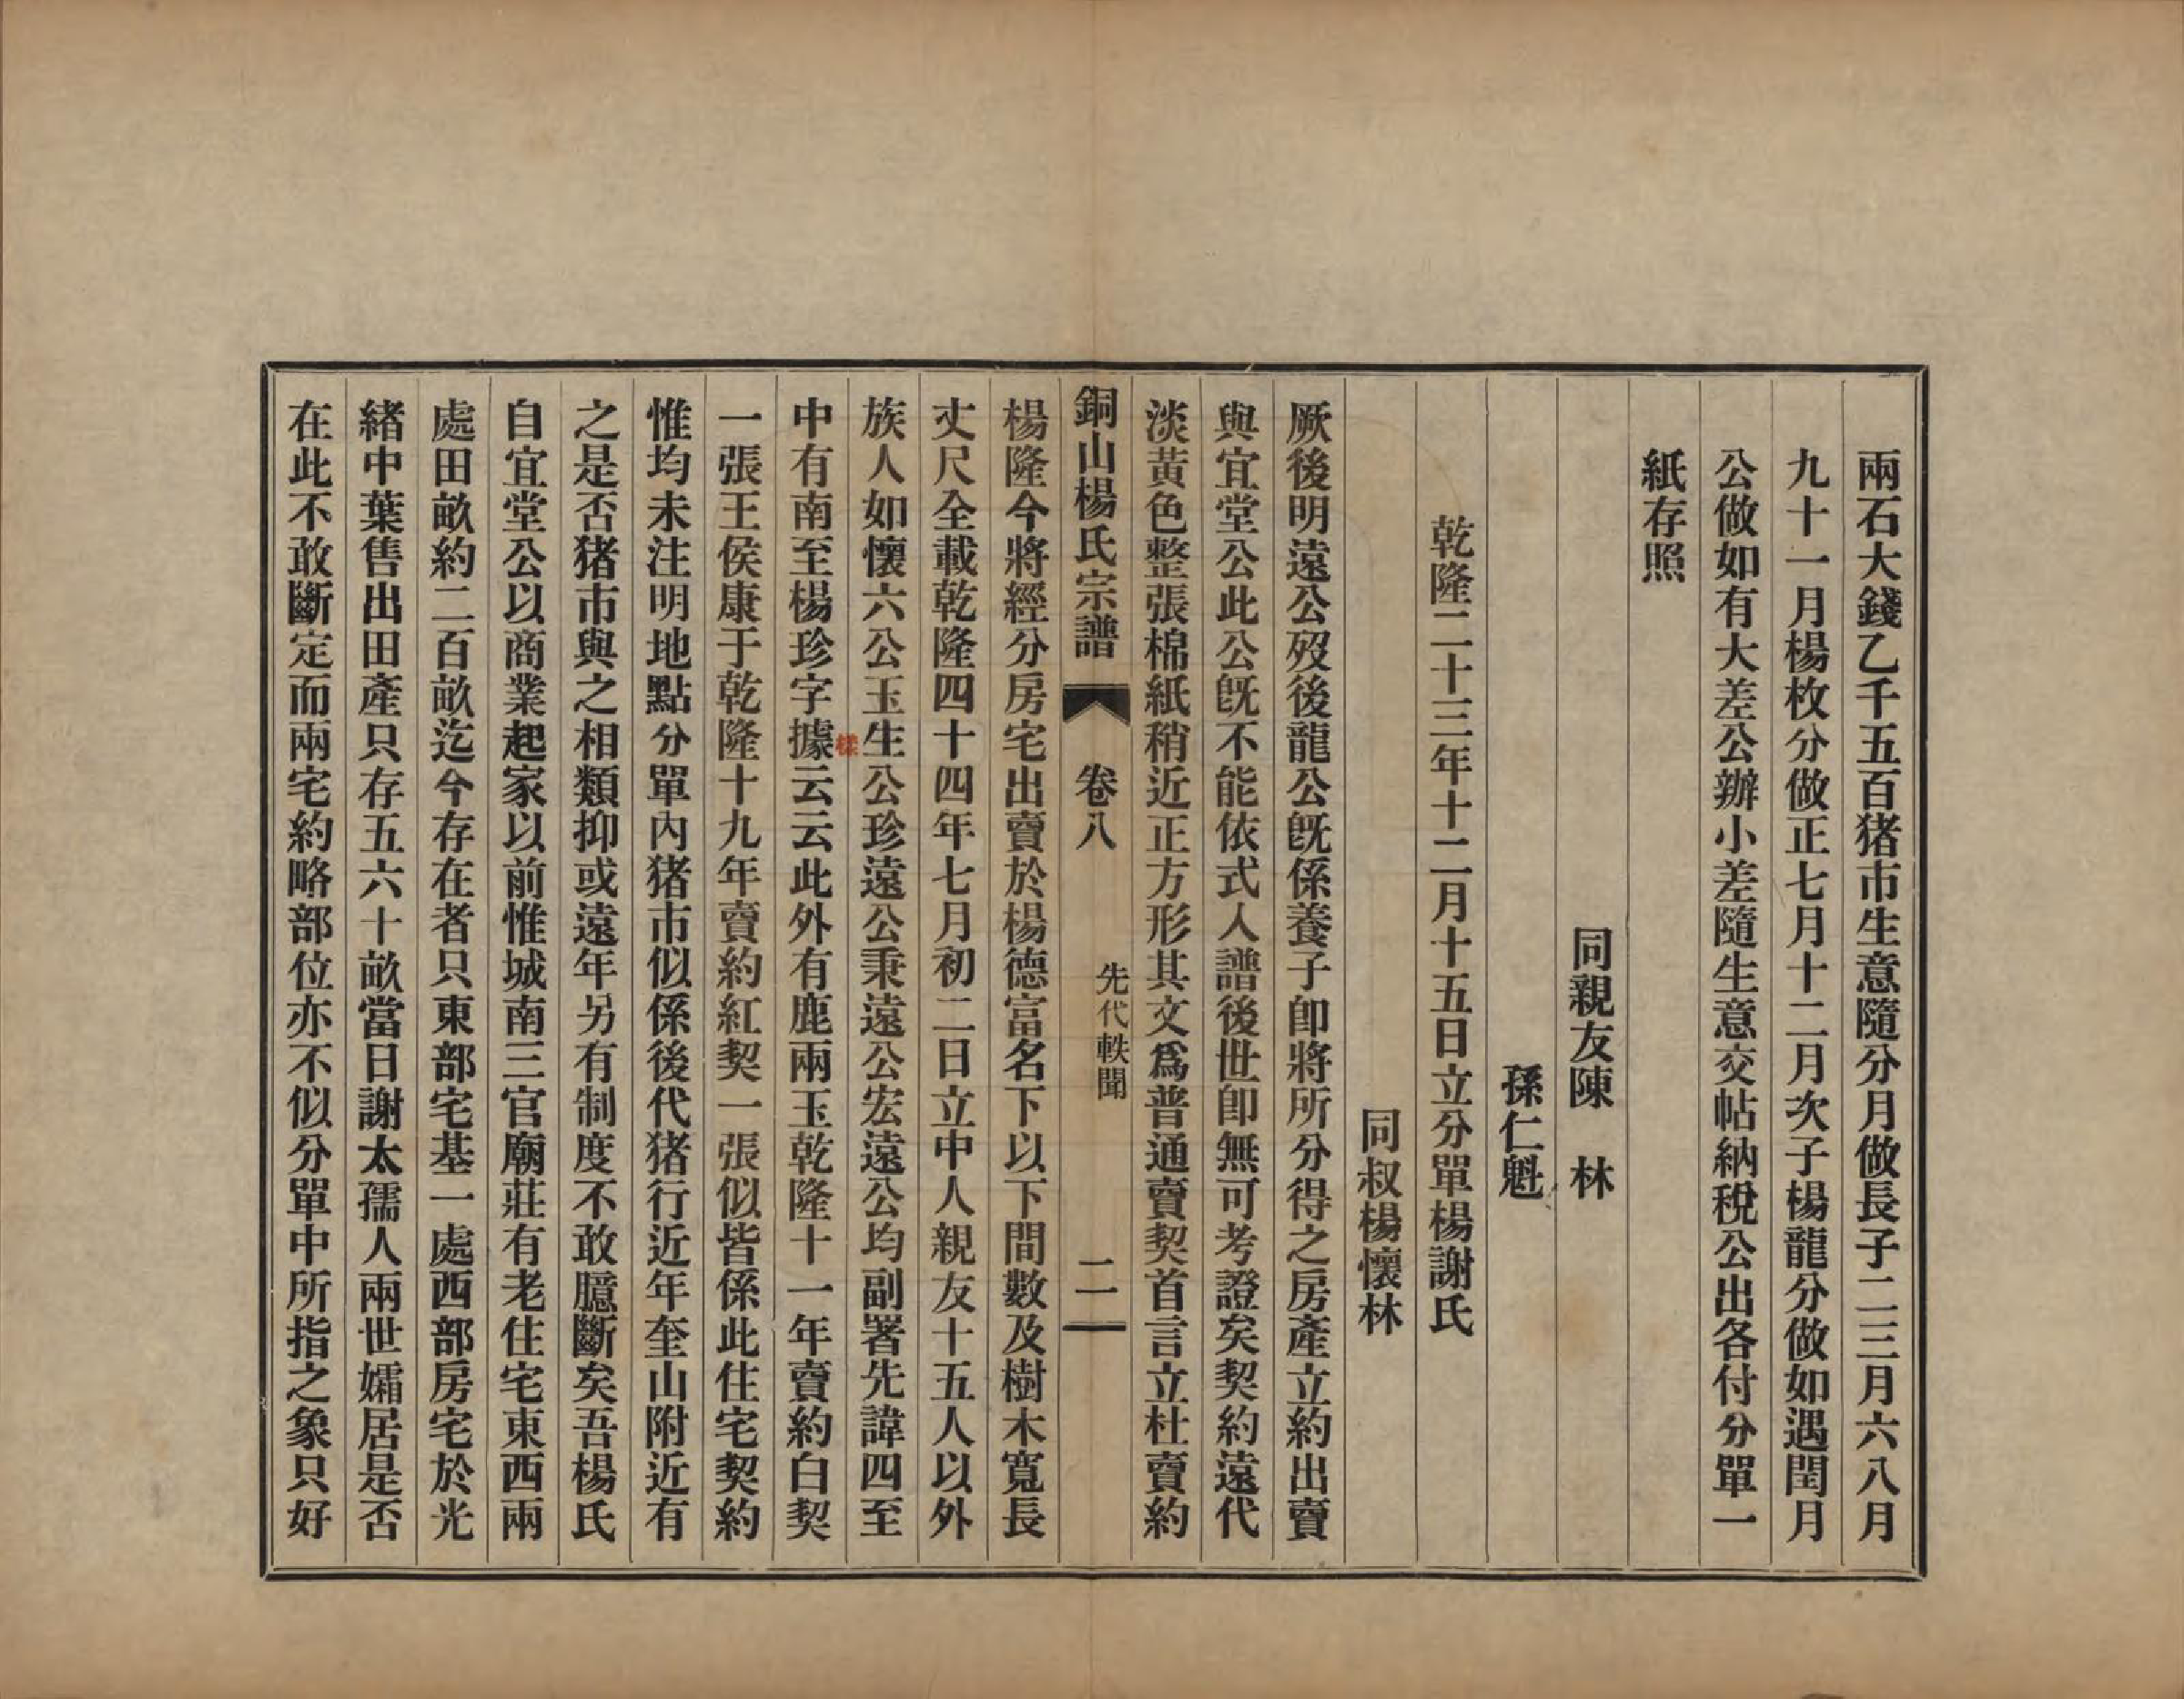 兩石大錢乙千五百猪市生意隨分月做長子二三月六八月
九十一月楊枚分做正七月十二月次子楊龍分做如遇閏月
公做如有大差公辦小差隨生意交帖納稅公出各付分單一
紙存照
同親友陳　林
孫仁魁
乾隆二十三年十二月十五日立分單楊謝氏
同叔楊懷林
厥後明遠公歿後龍公旣係養子卽將所分得之房產立約出賣
與宜堂公此公旣不能依式入譜後世卽無可考證矣契約遠代
淡黃色整張棉紙稍近正方形其文爲普通賣契首言立杜賣約
銅山楊氏宗譜　卷八　先代軼聞　二
楊隆今將經分房宅出賣於楊德富名下以下間數及樹木寬長
丈尺全載乾隆四十四年七月初二日立中人親友十五人以外
族人如懷六公玉生公珍遠公秉遠公宏遠公均副署先諱四至
樣
中有南至楊珍字據云云此外有鹿兩玉乾隆十一年賣約白契
一張王侯康于乾隆十九年賣約紅契一張似皆係此住宅契約
惟均未注明地點分單內猪市似係後代猪行近年奎山附近有
之是否猪市與之相類抑或遠年另有制度不敢臆斷矣吾楊氏
自宜堂公以商業起家以前惟城南三官廟莊有老住宅東西兩
處田畝約二百畝迄今存在者只東部宅基一處西部房宅於光
緒中葉售出田產只存五六十畝當日謝太孺人兩世孀居是否
在此不敢斷定而兩宅約略部位亦不似分單中所指之象只好